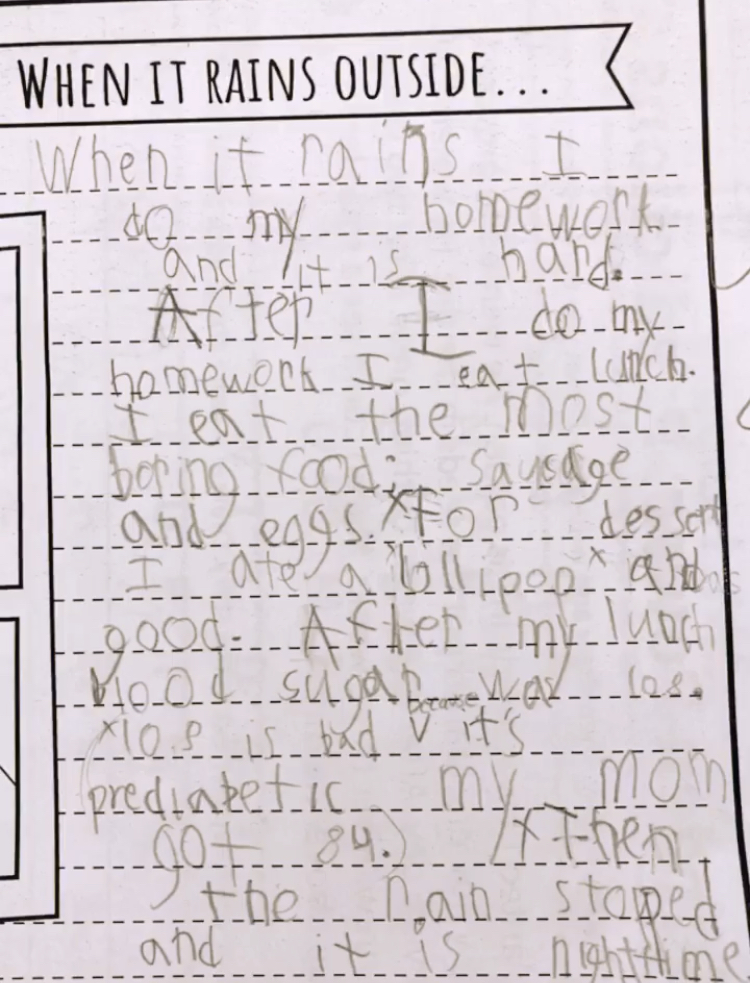 WHEN IT RAINS OUTSIDE...
When it rains I
do my homework
and it is hard.
After I do my
homework I eat lunch.
I eat the most
boring food: sausage
and eggs. For dessert
I ate a lollipop and
good. After my lunch
blood sugar was 108.
108 is bad because it's
prediabetic my mom
got 84.) Then
the rain stoped
and it is nighttime